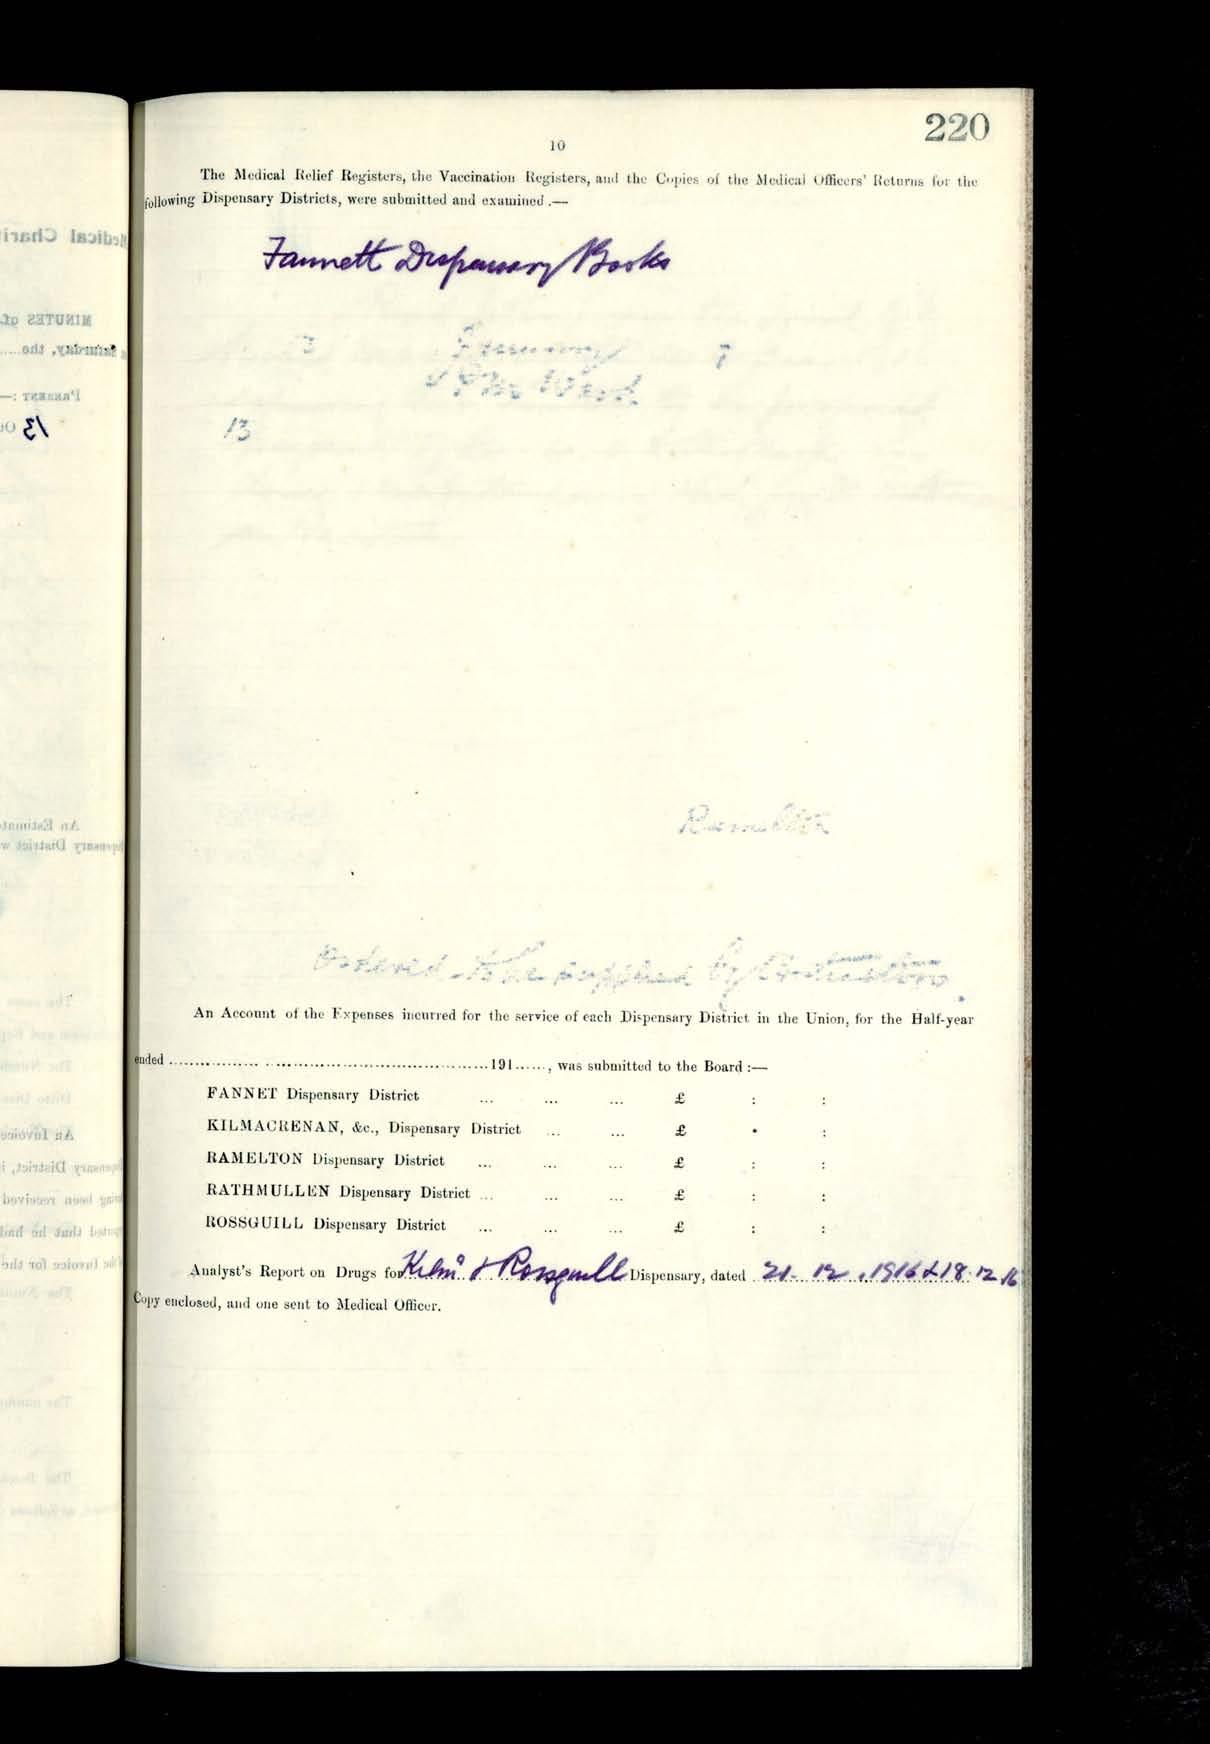 220
10
The Medical Relief Registers, the Vaccination Registers, and the Copies of the Medical Officers' Returns for the
following Dispensary Districts, were submitted and examined .—
Fannett Dispensary Books
13
Ordered to be supplied by Contractors.
An Account of the Expenses incurred for the service of each Dispensary District in the Union, for the Half-year
ended ........................................................191......, was submitted to the Board :—
FANNET Dispensary District ... ... ... £ : :
KILMACRENAN, &c., Dispensary District ... ... £ : :
RAMELTON Dispensary District ... ... ... £ : :
RATHMULLEN Dispensary District ... ... ... £ : :
ROSSGUILL Dispensary District ... ... ... £ : :
Analyst's Report on Drugs for & Rossguill Dispensary, dated 21. 12. 1916 & 18.12.16
Copy enclosed, and one sent to Medical Officer.